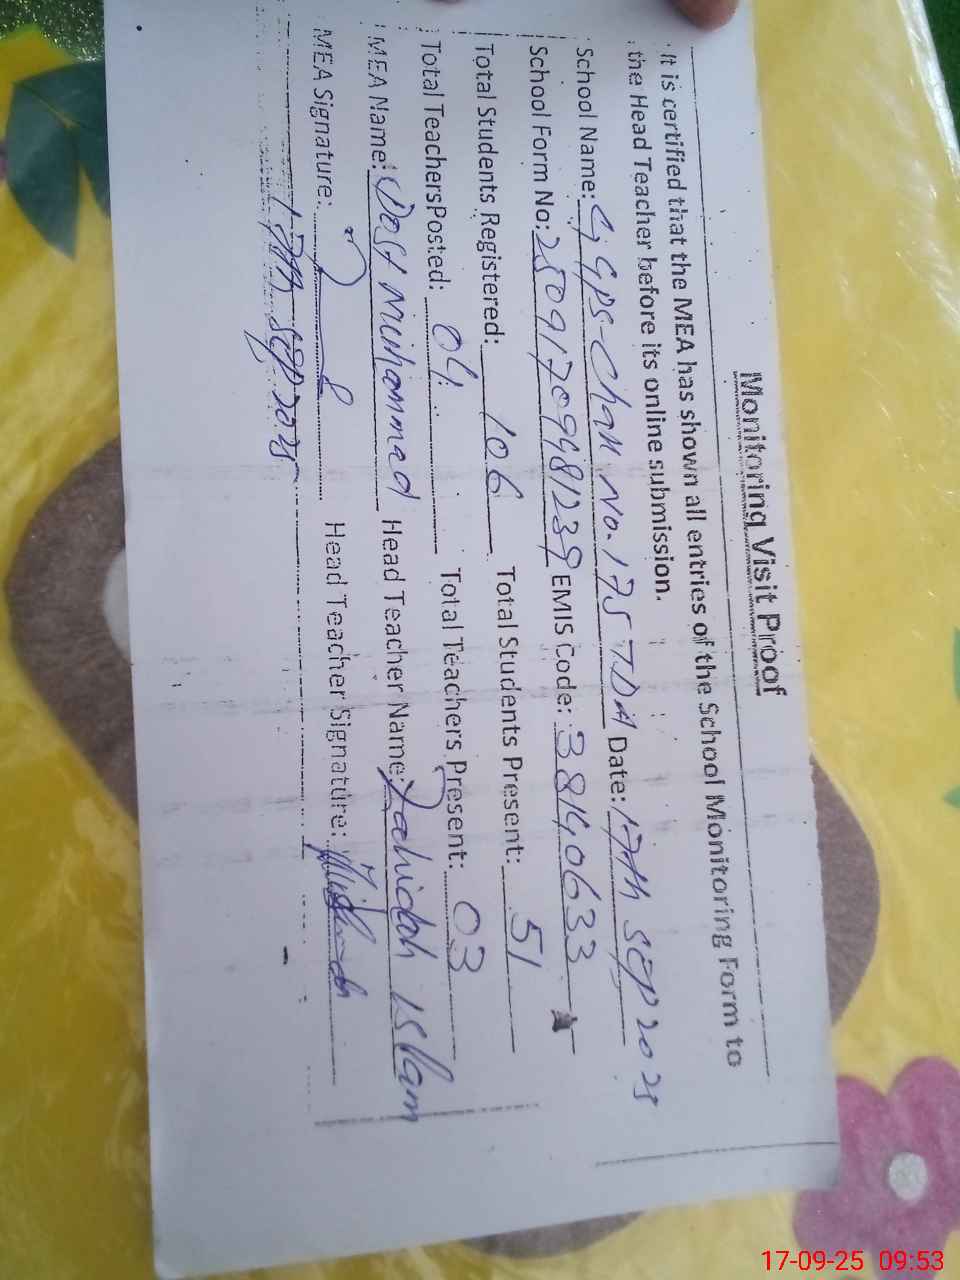 Monitoring Visit Proof
It is certified that the MEA has shown all entries of the School Monitoring Form to
the Head Teacher before its online submission.
School Name: GGPS-Chak No. 175 TDA Date: 17th SEP 2025
School Form No: 250917099481239 EMIS Code: 38140633
Total Students Registered: 106 Total Students Present: 51
Total TeachersPosted: 04 Total Teachers Present: 03
MEA Name: Dost Muhammad Head Teacher Name: Zahidah Islam
MEA Signature: Head Teacher Signature:
17th SEP 2025
17-09-25 09:53